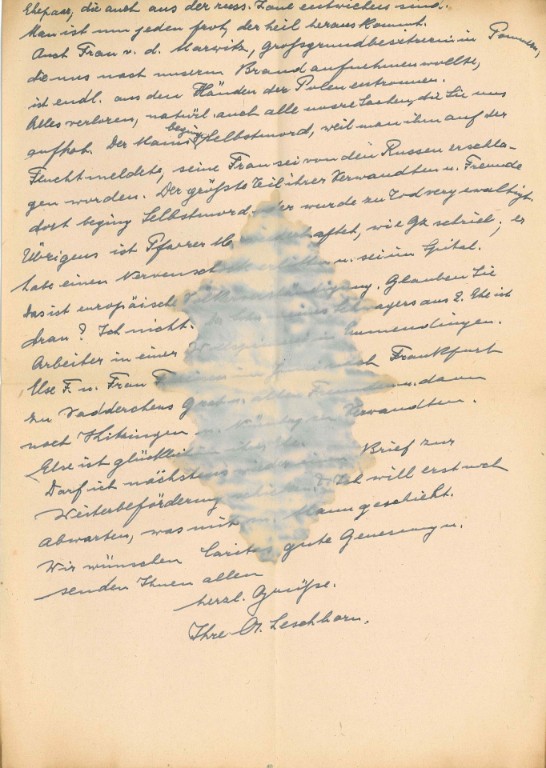 Ehepaar, die auch aus der russ. Zone entwichen sind.
Man ist um jeden froh, der heil heraus kommt.
Auch Frau v. d. Marwitz, Grossgrundbesitzerin in Pommern,
die uns nach unserem Brand aufnehmen wollte,
ist endl. aus den Händen der Polen entronnen.
Alles verloren, natürl. auch alle unsre Sachen, die sie uns
aufhob. Der Mann beging Selbstmord, weil man ihm auf der
Flucht meldete, seine Frau sei von den Russen erschla-
gen worden. Der größte Teil ihrer Verwandten u. Freunde
dort beging Selbstmord oder wurde zu Tod vergewaltigt.
Übrigens ist Pfarrer verhaftet, wie schrieb; er
habe einen Nervenschock erlitten u. sei im Spital.
Das ist europäisch Glauben Sie
dran? Ich nicht. meines Schwagers aus 2. Ehe ist
Arbeiter in einer in Emmendingen.
Else F. u. Frau nach Frankfurt
zu Vadderchens alten Freunden u. dann
noch u. Verwandten.
Else ist glücklich
Darf ich nächstens Brief zur
Weiterbeförderung Ich will erst noch
abwarten, was mit m. Mann geschieht.
Wir wünschen Caritas gute Genesung u.
senden Ihnen allen
herzl. Grüße.
Ihre Leschhorn.